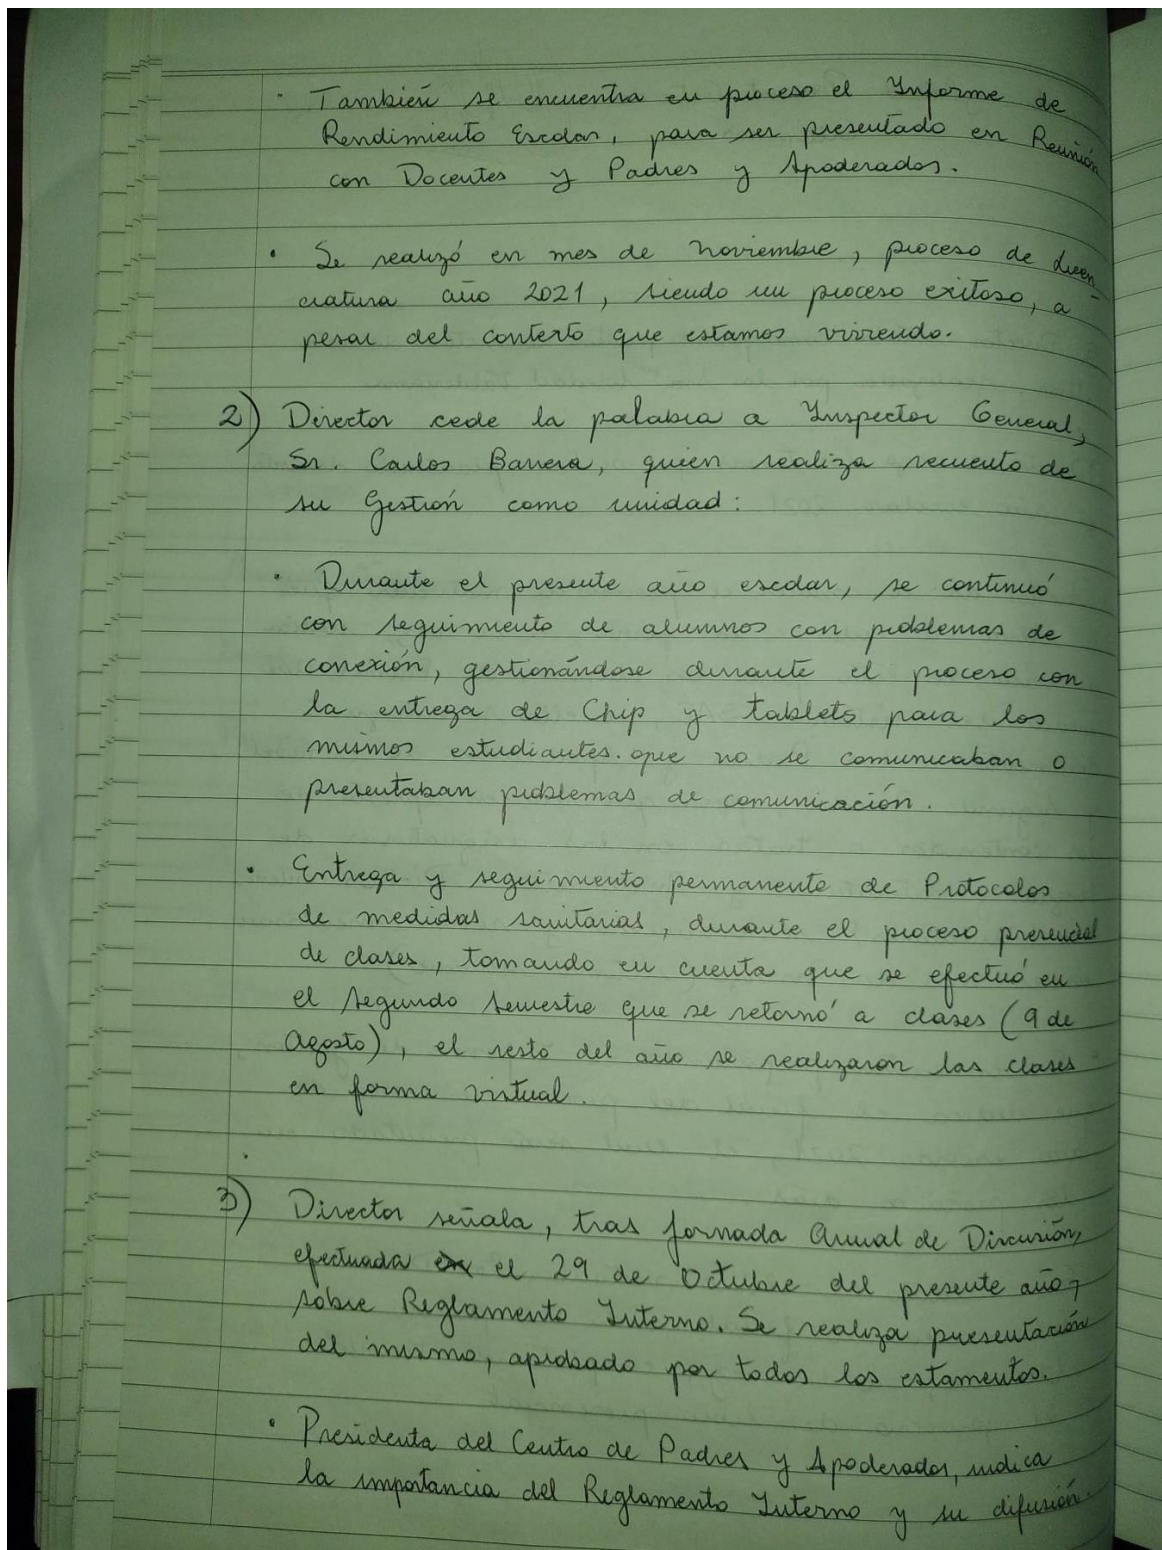 · También se encuentra en proceso el Informe de
Rendimiento Escolar, para ser presentado en Reunión
con Docentes y Padres y Apoderados.
· Se realizó en mes de noviembre, proceso de Licen-
ciatura año 2021, siendo un proceso exitoso, a
pesar del contexto que estamos viviendo.
2) Director cede la palabra a Inspector General,
Sr. Carlos Barrera, quien realiza recuento de
su Gestión como unidad:
· Durante el presente año escolar, se continuó
con seguimiento de alumnos con problemas de
conexión, gestionándose durante el proceso con
la entrega de Chip y tablets para los
mismos estudiantes. que no se comunicaban o
presentaban problemas de comunicación.
· Entrega y seguimiento permanente de Protocolos
de medidas sanitarias, durante el proceso presencial
de clases, tomando en cuenta que se efectuó en
el segundo semestre que se retornó a clases (9 de
Agosto), el resto del año se realizaron las clases
en forma virtual.
3) Director señala, tras Jornada Anual de Discusión,
efectuada el 29 de Octubre del presente año,
sobre Reglamento Interno. Se realiza presentación
del mismo, aprobado por todos los estamentos.
· Presidenta del Centro de Padres y Apoderados, indica
la importancia del Reglamento Interno y su difusión.